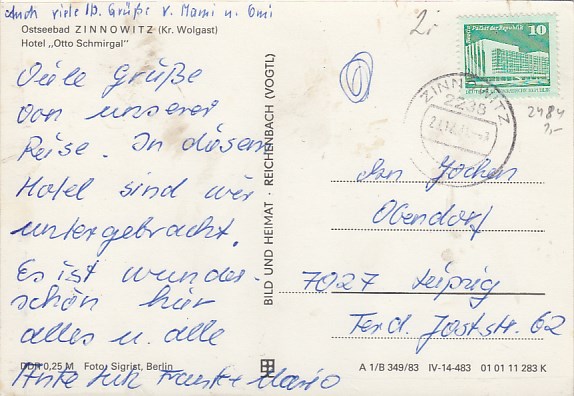 Auch viele lb. Grüße v. Mami u. Omi
Ostseebad ZINNOWITZ (Kr. Wolgast)
Hotel „Otto Schmirgal"
Viele Grüße
von unserer
Reise. In diesem
Hotel sind wir
untergebracht.
Es ist wunder-
schön hier
alles u. alle
DDR 0,25 M Foto: Sigrist, Berlin
Frank + Mario
BILD UND HEIMAT · REICHENBACH (VOGTL)
2,-
DDR
10
Palast der Republik
ZINNOWITZ
2238
2484
2,-
Jochen
Obendorf
7027 Leipzig
Ferd. Jost str. 62
A 1/B 349/83 IV-14-483 01 01 11 283 K